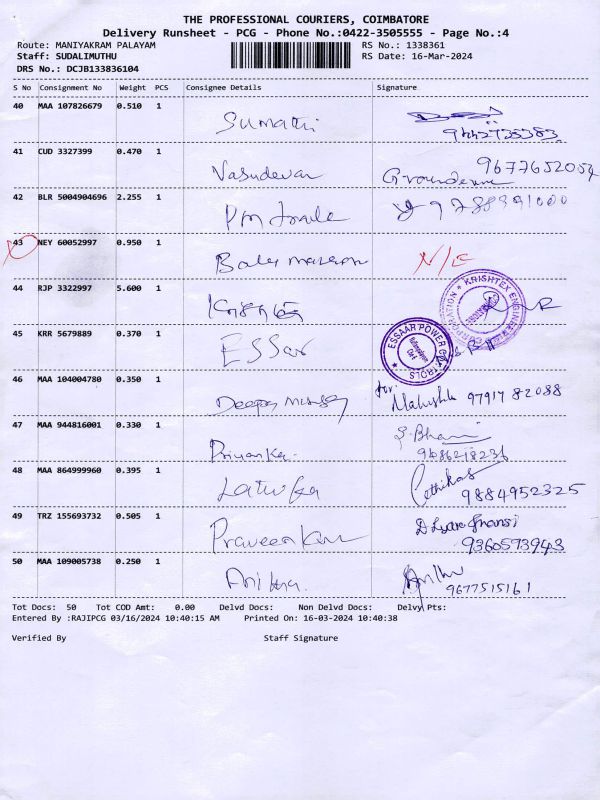 THE PROFESSIONAL COURIERS, COIMBATORE
Delivery Runsheet - PCG - Phone No.:0422-3505555 - Page No.:4
Route: MANIYAKRAM PALAYAM RS No.: 1338361
Staff: SUDALIMUTHU RS Date: 16-Mar-2024
DRS No.: DCJB133836104
S No Consignment No Weight PCS Consignee Details Signature
40 MAA 107826679 0.510 1
Sumathi 9442735383
41 CUD 3327399 0.470 1
Vasudevan 9677652054
42 BLR 5004904696 2.255 1
PM
43 NEY 60052997 0.950 1
N/C
44 RJP 3322997 5.600 1
KRISHTEX ENGINEERING CORPORATION
45 KRR 5679889 0.370 1
ESSar
ESSAAR POWER CONTROLS
46 MAA 104004780 0.350 1
Deepa for: 97917 82088
47 MAA 944816001 0.330 1
Priyanka. 9686218236
48 MAA 864999960 0.395 1
Latwika 9884952325
49 TRZ 155693732 0.505 1
Praveen Kumar 9360593943
50 MAA 109005738 0.250 1
9677515161
Tot Docs: 50 Tot COD Amt: 0.00 Delvd Docs: Non Delvd Docs: Delvy Pts:
Entered By :RAJIPCG 03/16/2024 10:40:15 AM Printed On: 16-03-2024 10:40:38
Verified By Staff Signature